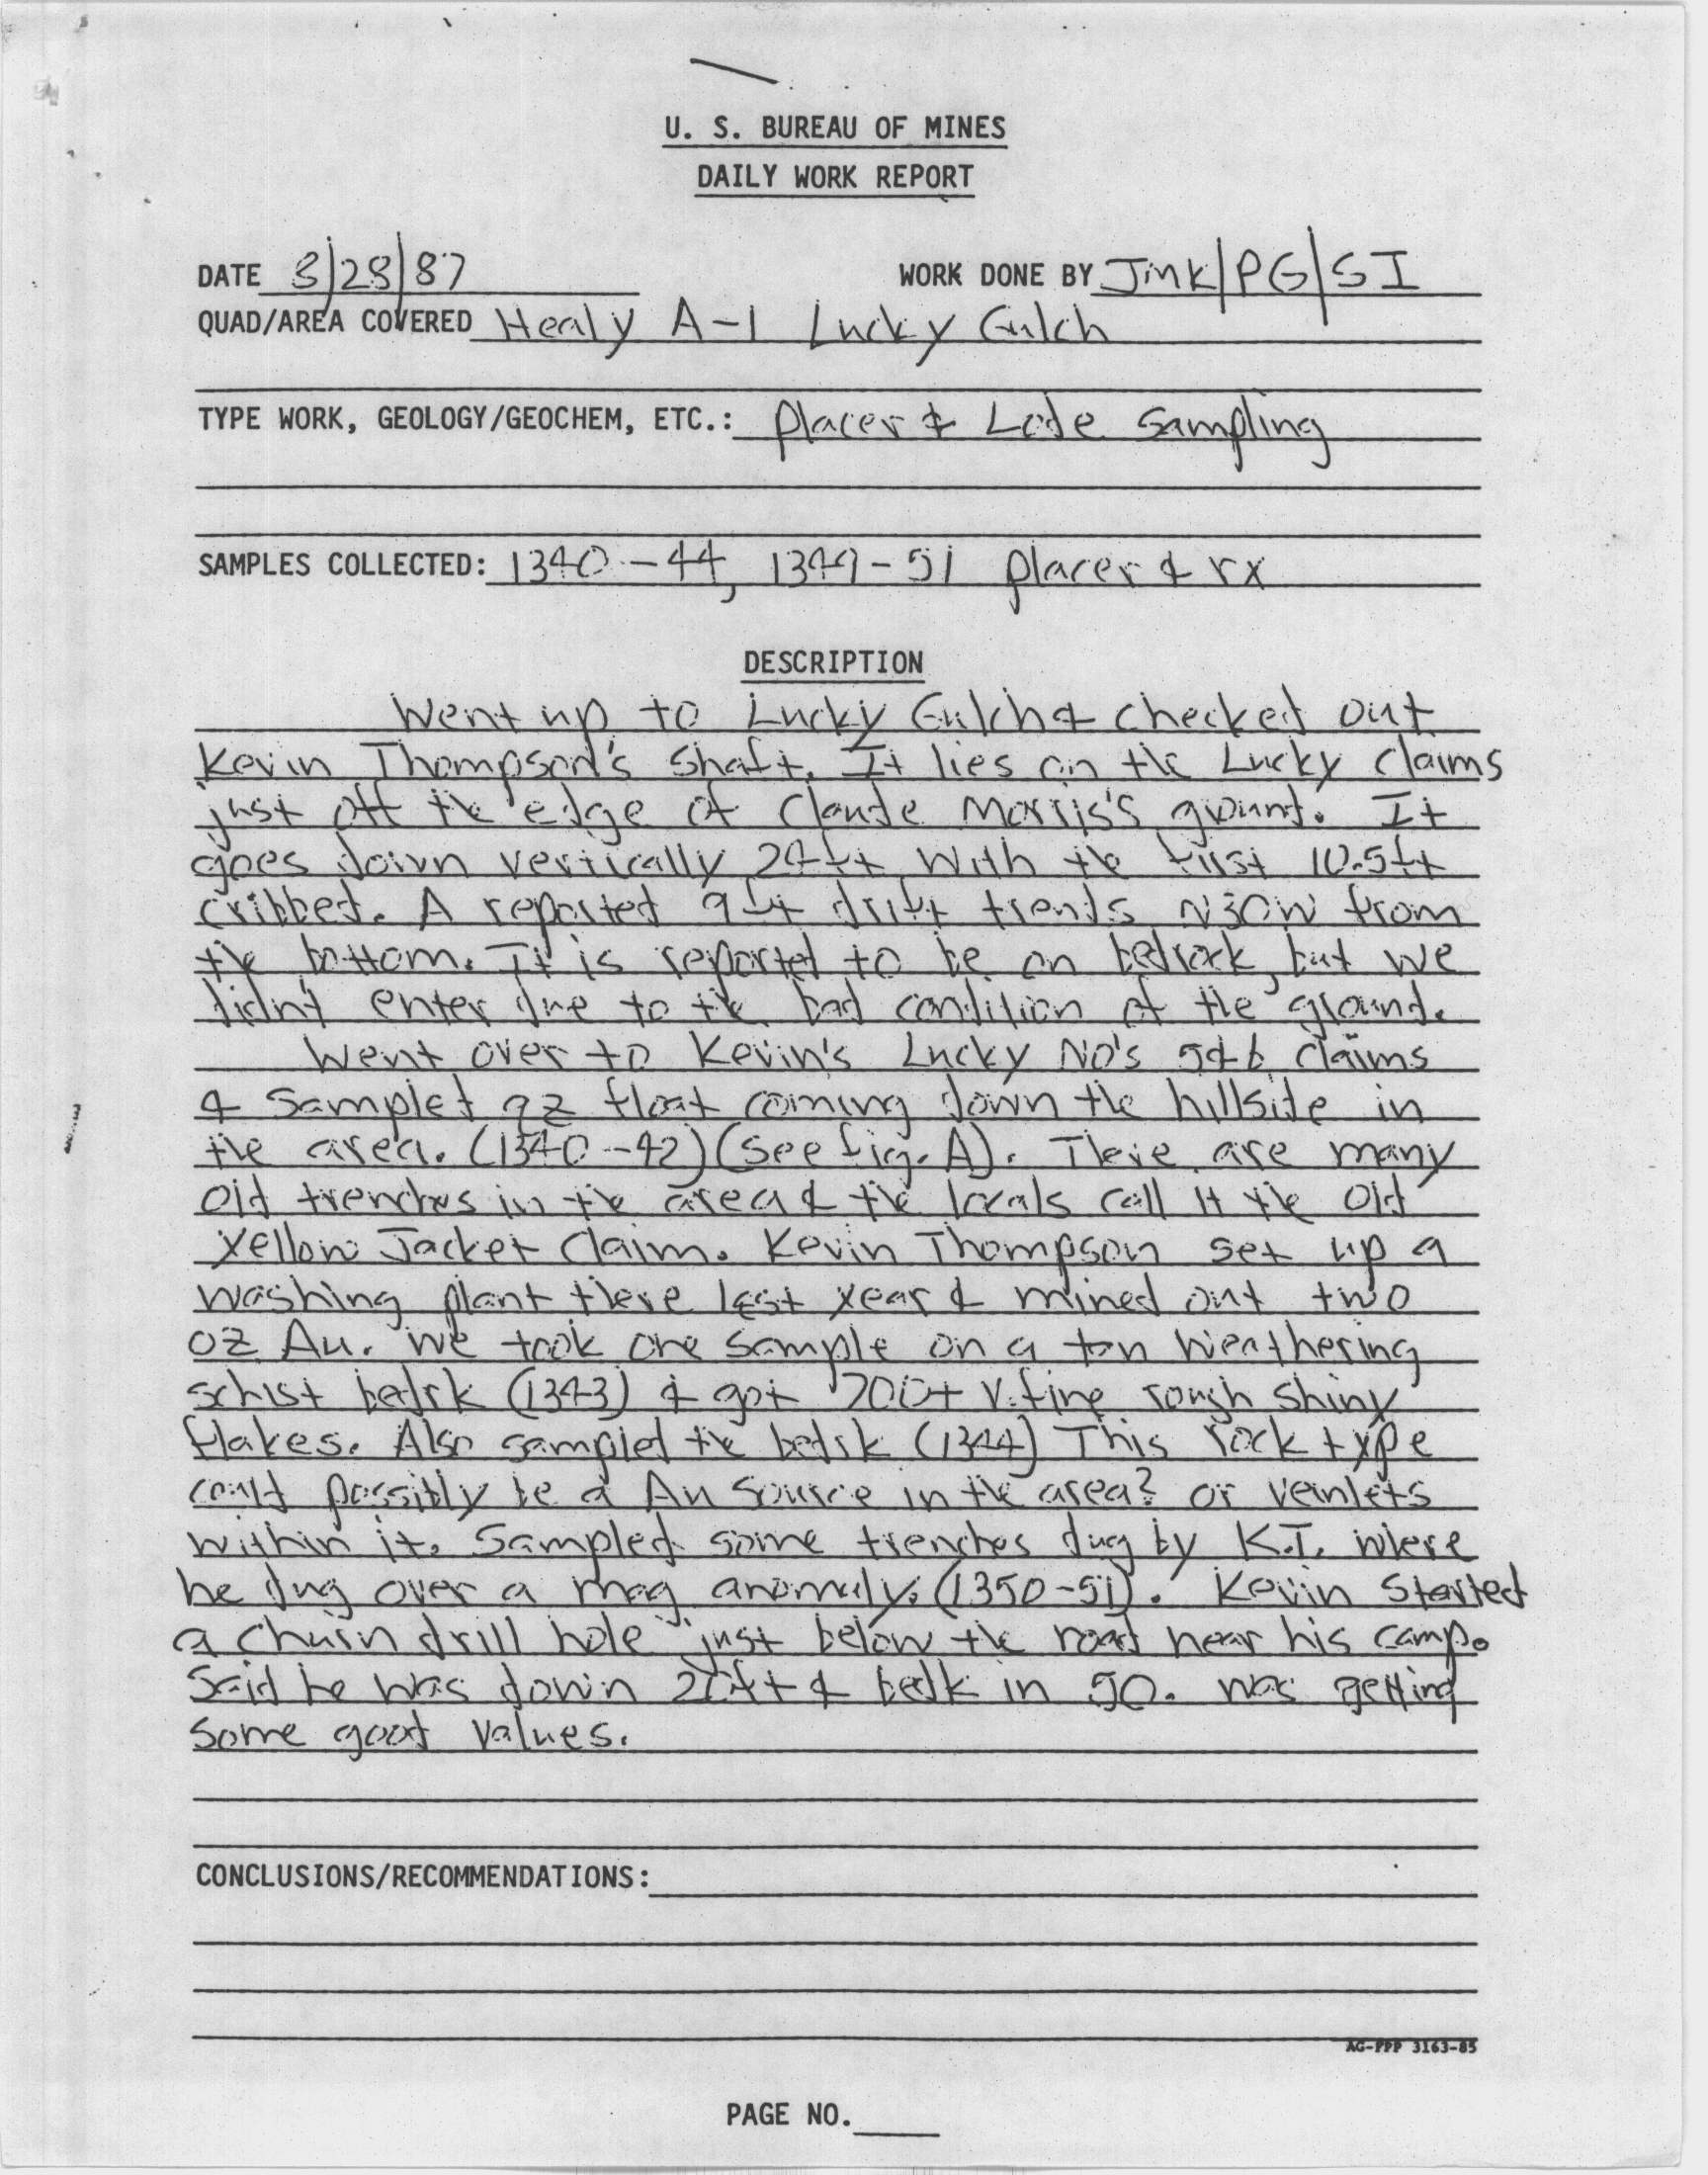 U. S. BUREAU OF MINES
DAILY WORK REPORT
DATE 8/28/87 WORK DONE BY JMK/PG/SI
QUAD/AREA COVERED Healy A-1 Lucky Gulch
TYPE WORK, GEOLOGY/GEOCHEM, ETC.: Placer & Lode Sampling
SAMPLES COLLECTED: 1340-44, 1349-51 placer & rx
DESCRIPTION
Went up to Lucky Gulch & checked out
Kevin Thompson's shaft. It lies on the Lucky claims
just off the edge of Claude Morris's ground. It
goes down vertically ft with the first 10.5ft
cribbed. A reported 9ft drift trends N30W from
the bottom. It is reported to be on bedrock, but we
didn't enter due to the bad condition of the ground.
Went over to Kevin's Lucky No's 5&6 claims
& sampled qz float coming down the hillside in
the area. (1340-42) (see fig. A). There are many
old trenches in the area & the locals call it the Old
Yellow Jacket Claim. Kevin Thompson set up a
washing plant there last year & mined out two
oz Au. We took one sample on a tan weathering
schist bedrk (1343) & got 200+ v.fine rough shiny
flakes. Also sampled the bedrk (1344) This rock type
could possibly be a Au source in the area? or veinlets
within it. Sampled some trenches dug by K.T. where
he dug over a mag anomaly. (1350-51). Kevin started
a churn drill hole just below the road near his camp.
Said he was down ft & bedk in 50. was getting
some good values.
CONCLUSIONS/RECOMMENDATIONS:
AG-PPP 3163-85
PAGE NO.